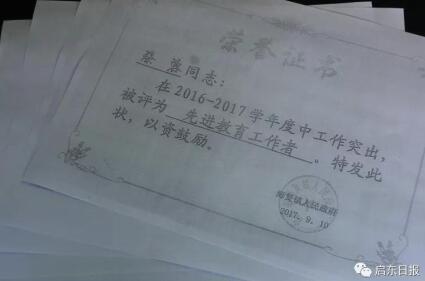 荣誉证书
张蓉同志：
在2016-2017学年度中工作突出，
被评为 先进教育工作者 。特发此
状，以资鼓励。
海复镇人民政府
2017.9.10
启东日报